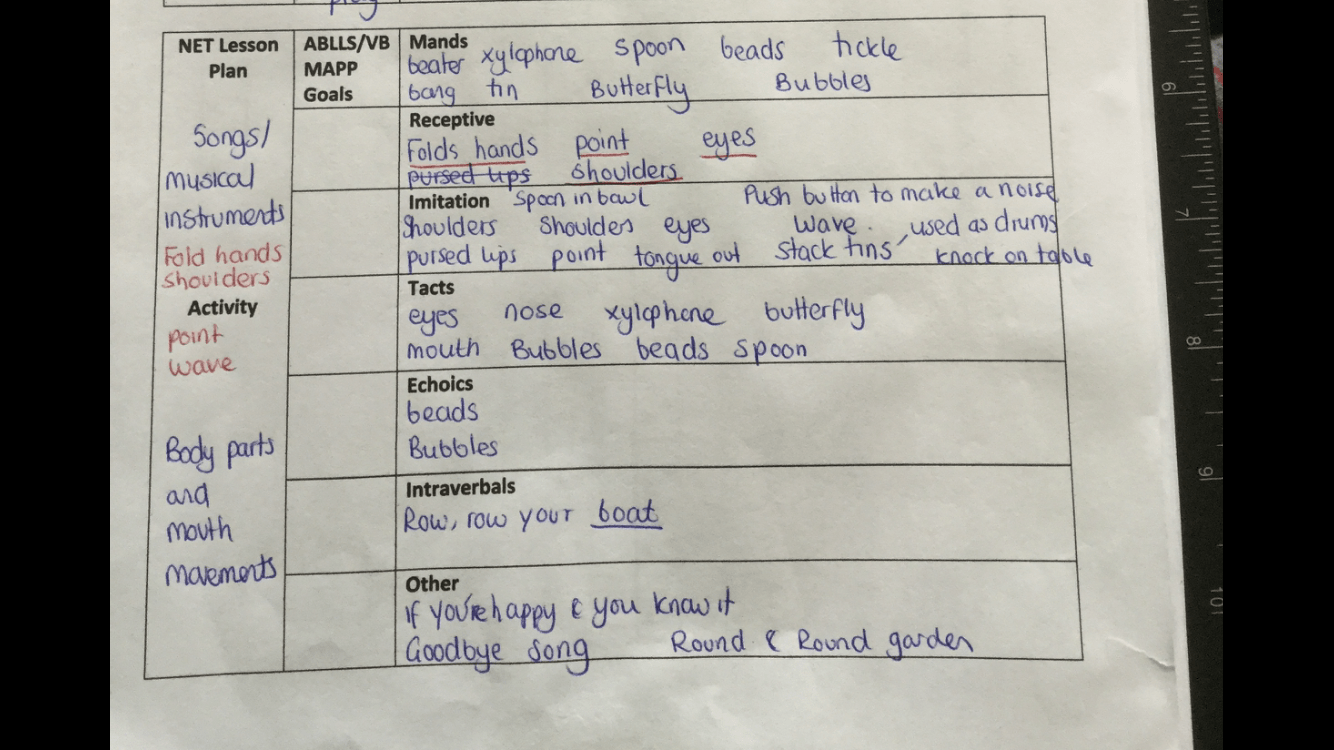 play
NET Lesson Plan
ABLLS/VB MAPP Goals
Mands
beater xylophone spoon beads tickle
bang tin Butterfly Bubbles
Songs/
musical
instruments
Fold hands
shoulders
Activity
point
wave
Body parts
and
mouth
movements
Receptive
Folds hands point eyes
pursed lips shoulders
Imitation Spoon in bowl Push button to make a noise
Shoulders Shoulders eyes wave. used as drums
pursed lips point tongue out stack tins knock on table
Tacts
eyes nose xylophone butterfly
mouth Bubbles beads spoon
Echoics
beads
Bubbles
Intraverbals
Row, row your boat
Other
If you're happy & you know it
Goodbye song Round & Round garden
6
7
8
9
10